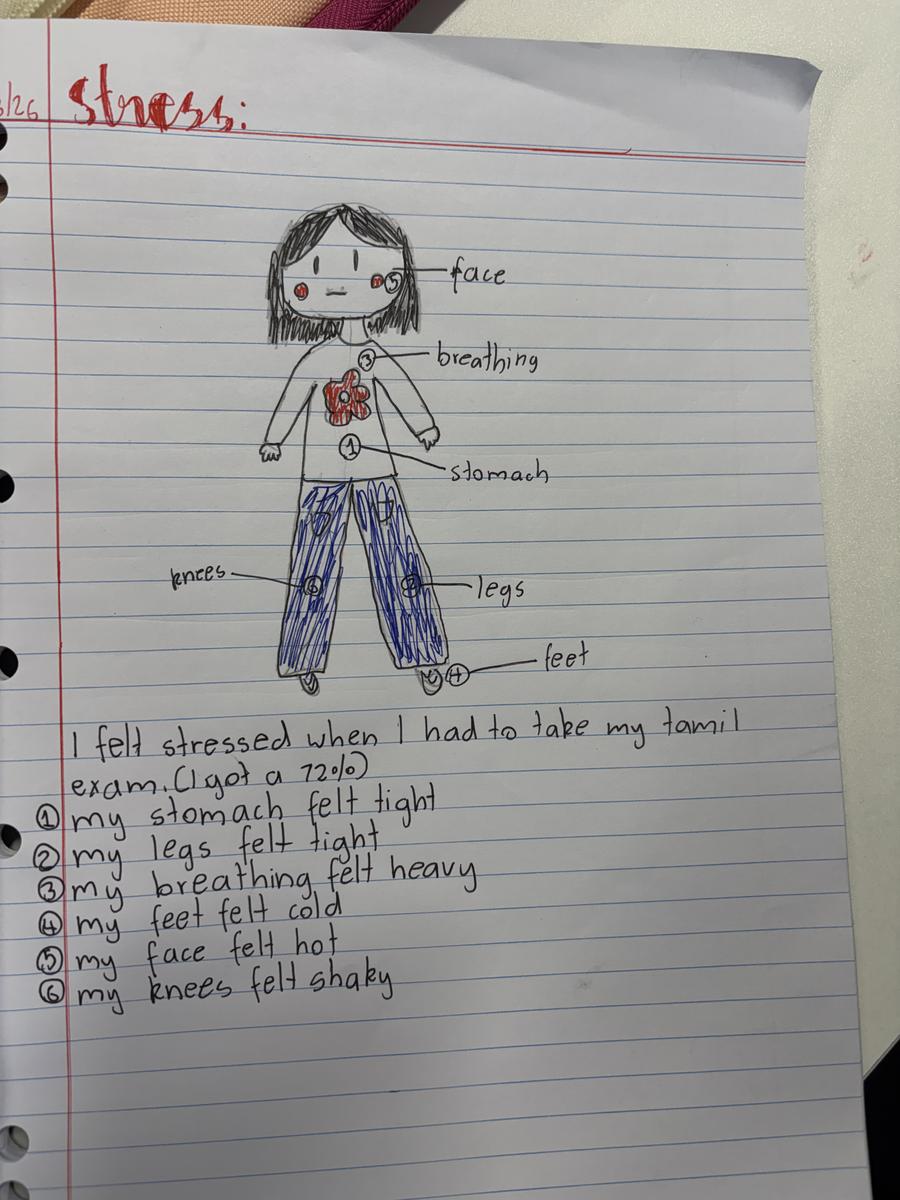 /26 stress:
face
breathing
stomach
knees
legs
feet
I felt stressed when I had to take my tamil
exam. (I got a 72%)
① my stomach felt tight
② my legs felt tight
③ my breathing felt heavy
④ my feet felt cold
⑤ my face felt hot
⑥ my knees felt shaky